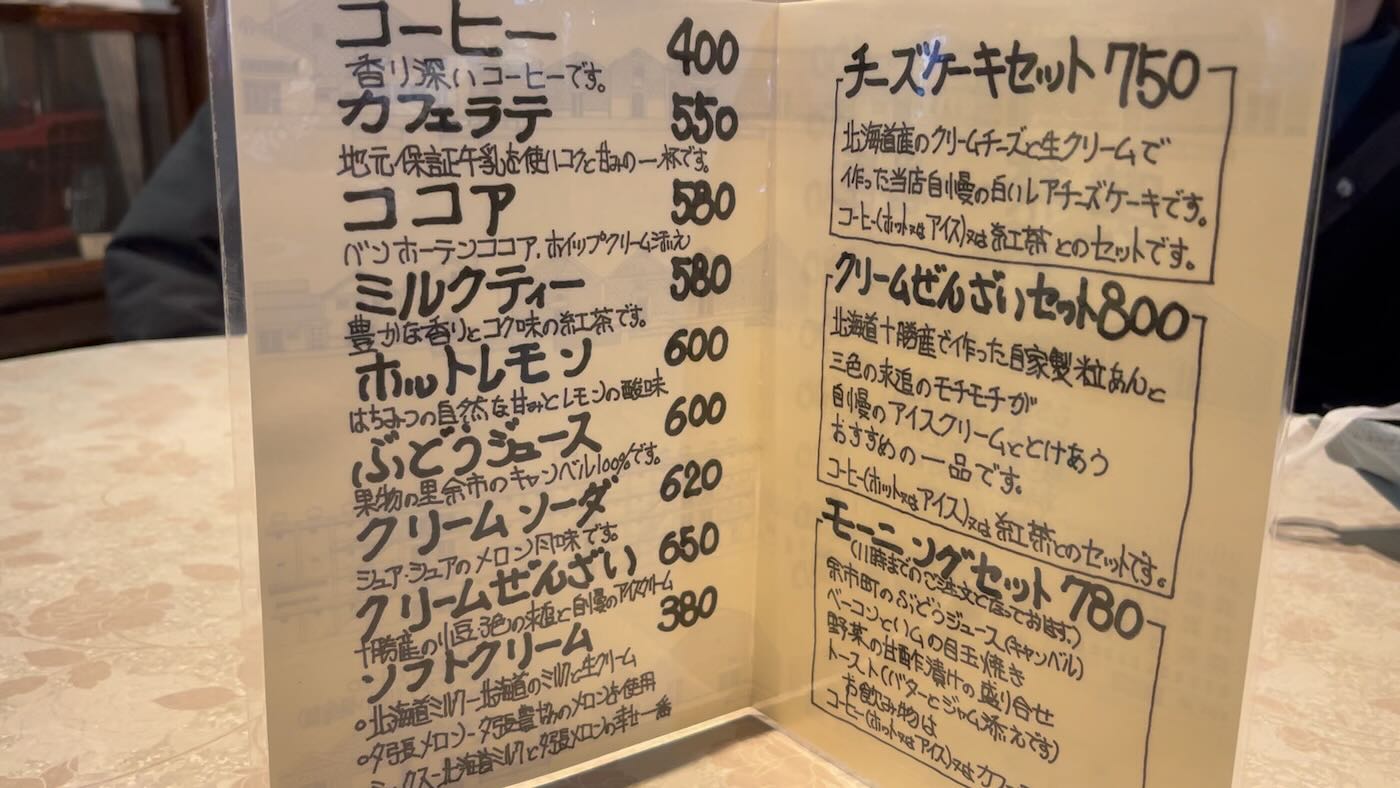 コーヒー 400
香り深いコーヒーです。
カフェラテ 550
地元保証牛乳を使いコクと甘みの一杯です。
ココア 580
バンホーテンココア、ホイップクリーム添え
ミルクティー 580
豊かな香りとコク味の紅茶です。
ホットレモン 600
はちみつの自然な甘みとレモンの酸味
ぶどうジュース 600
果物の里余市のキャンベル100%です。
クリームソーダ 620
シュア・シュアのメロン風味です。
クリームぜんざい 650
十勝産の小豆、3色の末追と自慢のアイスクリーム
ソフトクリーム 380
○北海道ミルク-北海道のミルクと生クリーム
○夕張メロン-夕張農協のメロンを使用
ミックス-北海道ミルクと夕張メロンの幸せ一番
チーズケーキセット 750
北海道産のクリームチーズと生クリームで
作った当店自慢の白いレアチーズケーキです。
コーヒー(ホット又はアイス)又は紅茶とのセットです。
クリームぜんざいセット 800
北海道十勝産で作った自家製粒あんと
三色の末追のモチモチが
自慢のアイスクリームととけあう
おすすめの一品です。
コーヒー(ホット又はアイス)又は紅茶とのセットです。
モーニングセット 780
(11時までのご注文となっております)
余市町のぶどうジュース(キャンベル)
ベーコンといムの目玉焼き
野菜の甘酢漬けの盛り合せ
トースト(バターとジャム添えです)
お飲み物は
コーヒー(ホット又はアイス)又はカフェ